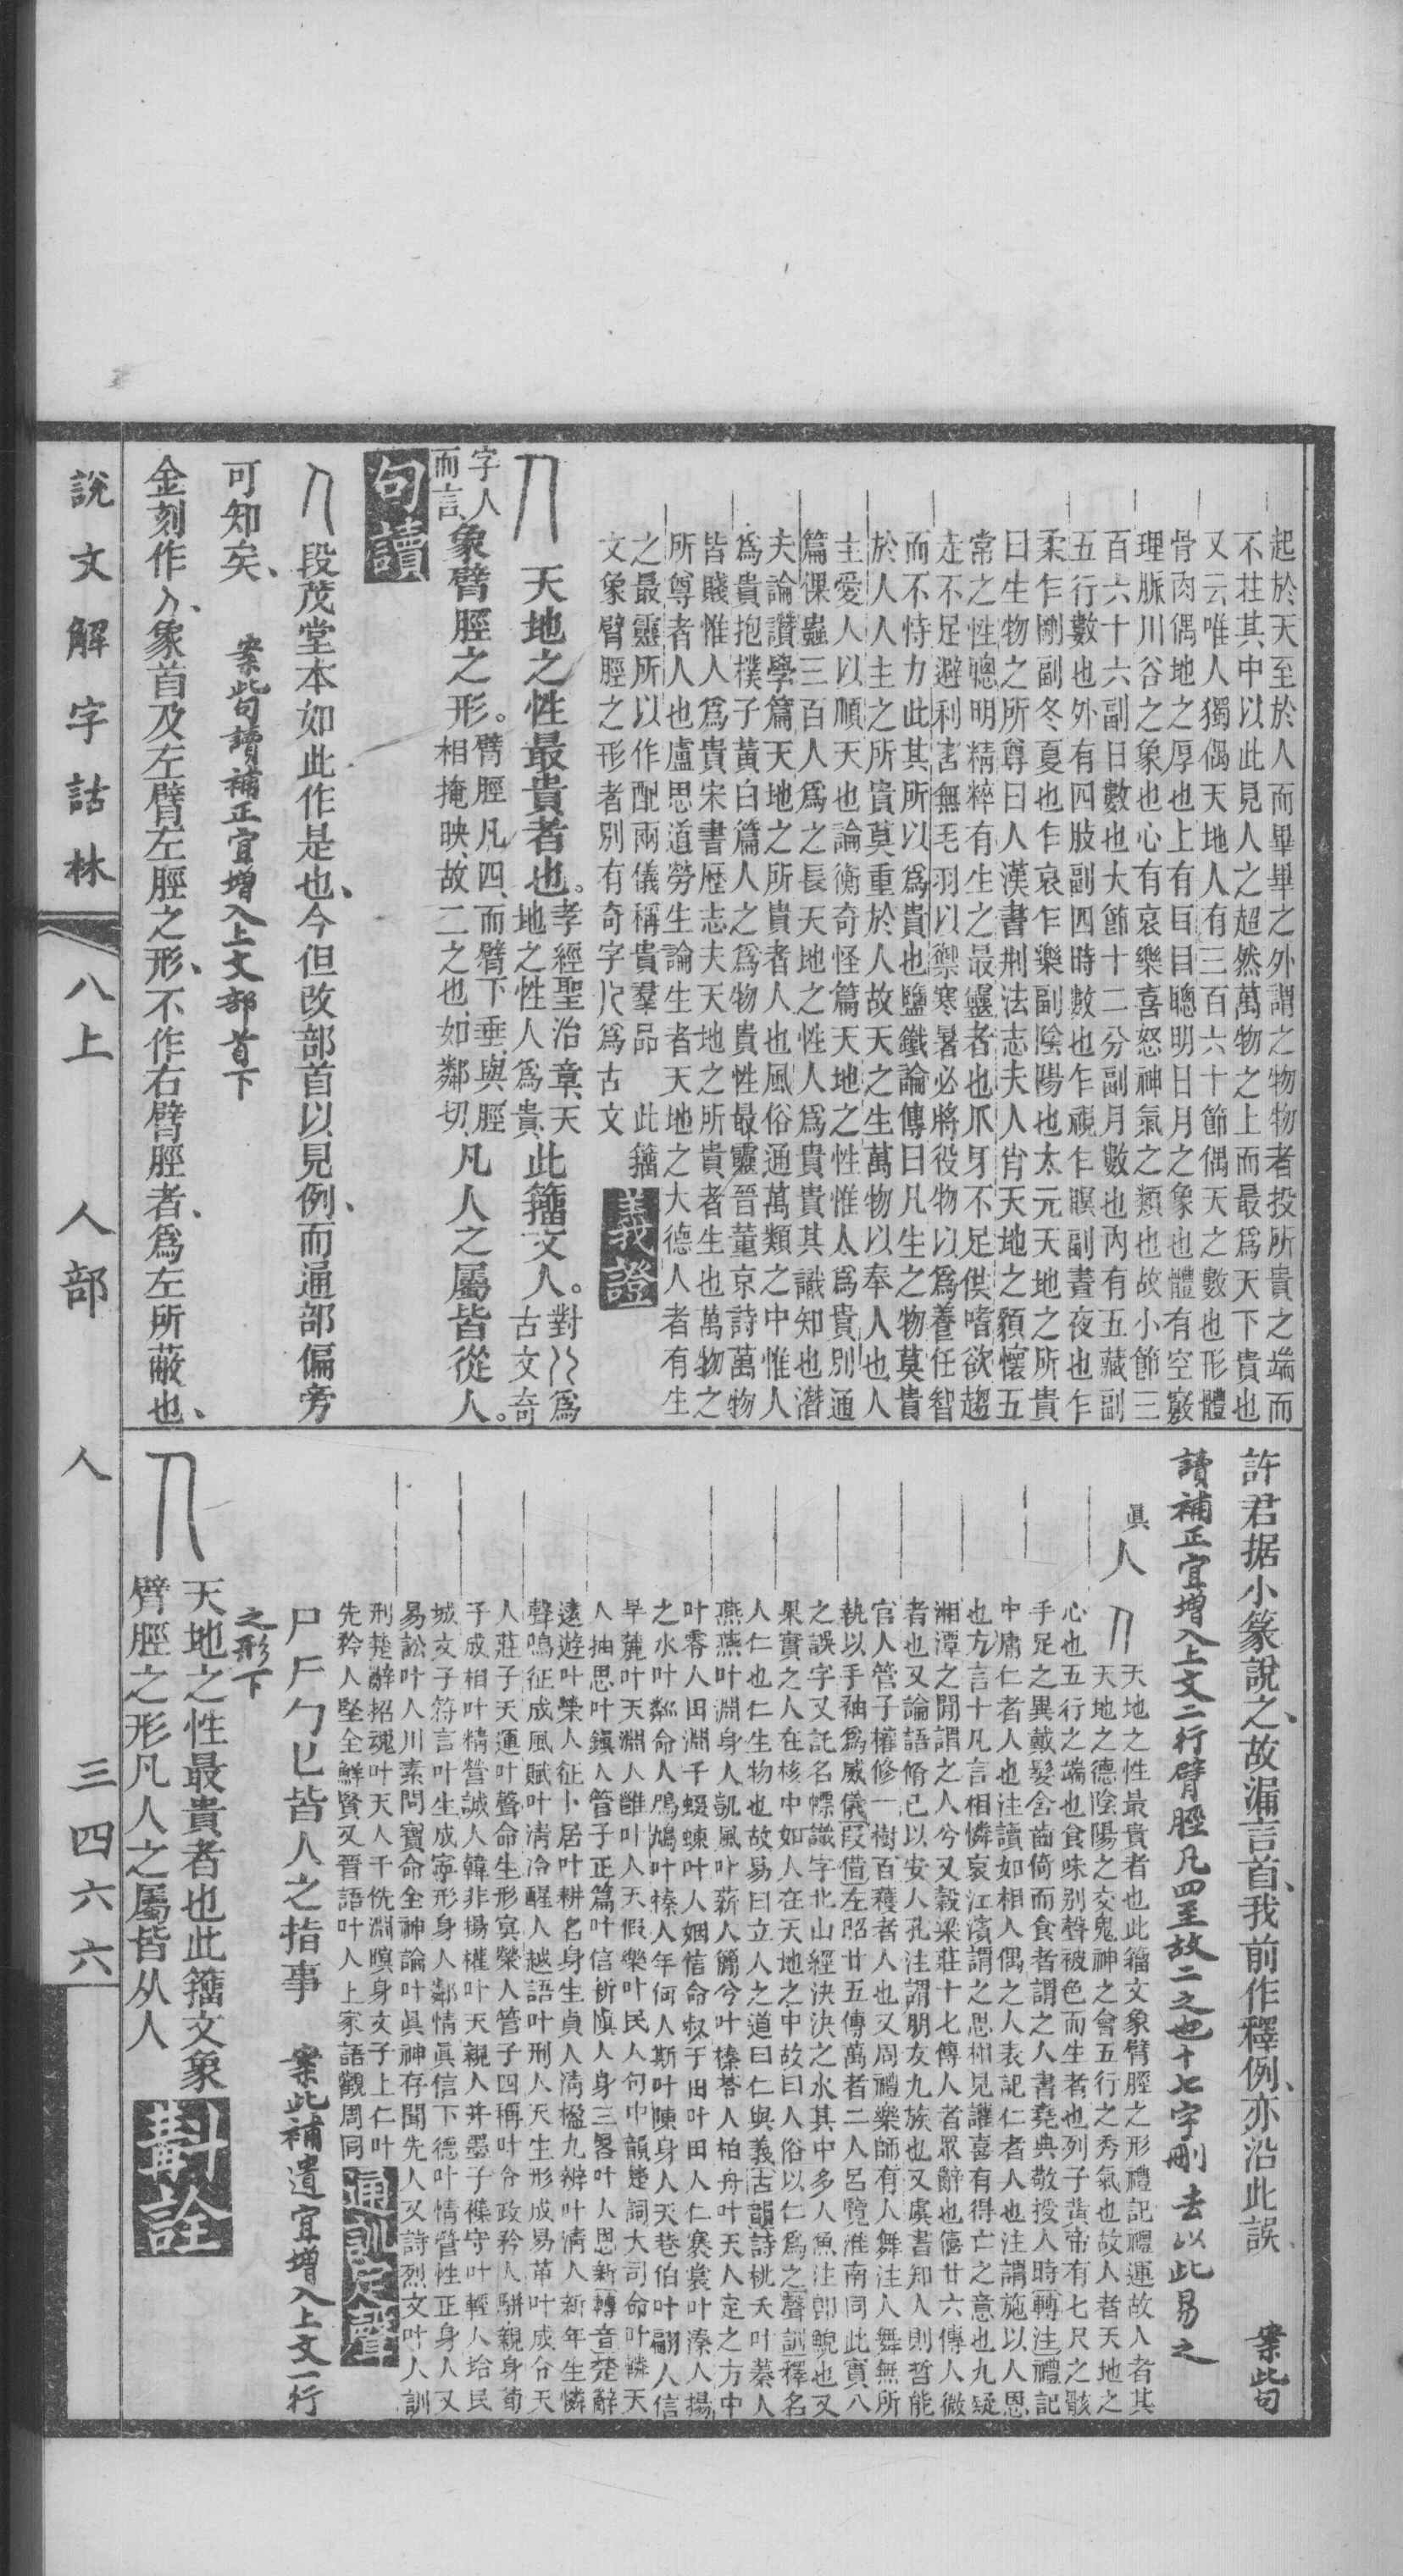 起於天至於人而畢畢之外謂之物物者投所貴之端而
不在其中以此見人之超然萬物之上而最爲天下貴也
又云唯人獨偶天地人有三百六十節偶天之數也形體
骨肉偶地之厚也上有耳目聰明日月之象也體有空竅
理脈川谷之象也心有哀樂喜怒神氣之類也故小節三
百六十六副日數也大節十二分副月數也內有五藏副
五行數也外有四肢副四時數也乍視乍瞑副晝夜也乍
柔乍剛副冬夏也乍哀乍樂副陰陽也太元天地之所貴
曰生物之所尊曰人漢書刑法志夫人肖天地之貌懷五
常之性聰明精粹有生之最靈者也爪牙不足供嗜欲趨
走不足避利害無毛羽以禦寒暑必將役物以爲養任智
而不恃力此其所以爲貴也鹽鐵論傳曰凡生之物莫貴
於人人主之所貴莫重於人故天之生萬物以奉人也人
主愛人以順天也論衡奇怪篇天地之性惟人爲貴別通
篇倮蟲三百人爲之長天地之性人爲貴貴其識知也潛
夫論讚學篇天地之所貴者人也風俗通萬類之中惟人
爲貴抱樸子黃白篇人之爲物貴性最靈晉董京詩萬物
皆賤惟人爲貴宋書歷志夫天地之所貴者生也萬物之
所尊者人也盧思道勞生論生者天地之大德人者有生
之最靈所以作配兩儀稱貴羣品 此籀
文象臂脛之形者別有奇字儿爲古文
義證
天地之性最貴者也。孝經聖治章、天地之性人爲貴、此籀文人。對儿爲古文奇
字人而言、象臂脛之形。臂脛凡四、而臂下垂、與脛相掩映、故二之也、如鄰切、凡人之屬皆從人。
句讀
段茂堂本如此作是也、今但改部首以見例、而通部偏旁
可知矣、 案此句讀補正宜增入上文部首下
金刻作人、象首及左臂左脛之形、不作右臂脛者、爲左所蔽也、
許君据小篆說之、故漏言首、我前作釋例、亦沿此誤、 案此句
讀補正宜增入上文二行臂脛凡四至故二之也十七字刪去以此易之
眞人
天地之性最貴者也此籀文象臂脛之形禮記禮運故人者其
天地之德陰陽之交鬼神之會五行之秀氣也故人者天地之
心也五行之端也食味別聲被色而生者也列子黃帝有七尺之骸
手足之異戴髮含齒倚而食者謂之人書堯典敬授人時轉注禮記
中庸仁者人也注讀如相人偶之人表記仁者人也注謂施以人恩
也方言十凡言相憐哀江濱謂之思相見讙喜有得亡之意也九疑
湘潭之閒謂之人兮又穀梁莊十七傳人者眾辭也僖廿六傳人微
者也又論語脩己以安人孔注謂朋友九族也又虞書知人則哲能
官人管子權修一樹百穫者人也又周禮樂師有人舞注人舞無所
執以手袖爲威儀叚借左昭廿五傳萬者二人呂覽淮南同此實八
之誤字又託名幖識字北山經決決之水其中多人魚注卽鯢也又
果實之人在核中如人在天地之中故曰人俗以仁爲之聲訓釋名
人仁也仁生物也故易曰立人之道曰仁與義古韻詩桃夭叶蓁人
燕燕叶淵身人凱風叶薪人簡兮叶榛苓人柏舟叶天人定之方中
叶零人田淵千蝃蝀叶人姻信命叔于田叶田人仁褰裳叶溱人揚
之水叶鄰命人鳲鳩叶榛人年何人斯叶陳身人天巷伯叶翩人信
旱麓叶天淵人雝叶人天假樂叶民人句中韻楚詞大司命叶轔天
人抽思叶鎭人管子正篇叶信祈愼人身三畧叶人恩新轉音楚辭
遠遊叶榮人征卜居叶耕名身生貞人淸楹九辨叶淸人新年生憐
聲鳴征成風賦叶淸泠醒人越語叶刑人天生形成易革叶成命天
人莊子天運叶聲命生形冥榮人管子四稱叶令政矜人騈親身荀
子成相叶精營誠人韓非揚權叶天親人幷墨子襍守叶輕人給民
城文子符言叶生成寧形身人鄰情眞信下德叶情管性正身人又
易訟叶人川素問寶命全神論叶眞神存聞先人又詩烈文叶人訓
刑楚辭招魂叶天人千侁淵瞑身文子上仁叶
先矜人堅全鮮賢又晉語叶人上家語觀周同
通訓定聲
尸𠂆勹匕皆人之指事 案此補遺宜增入上文一行
之形下
天地之性最貴者也此籀文象
臂脛之形凡人之屬皆从人
斠詮
說文解字詁林 八上 人部 人 三四六六